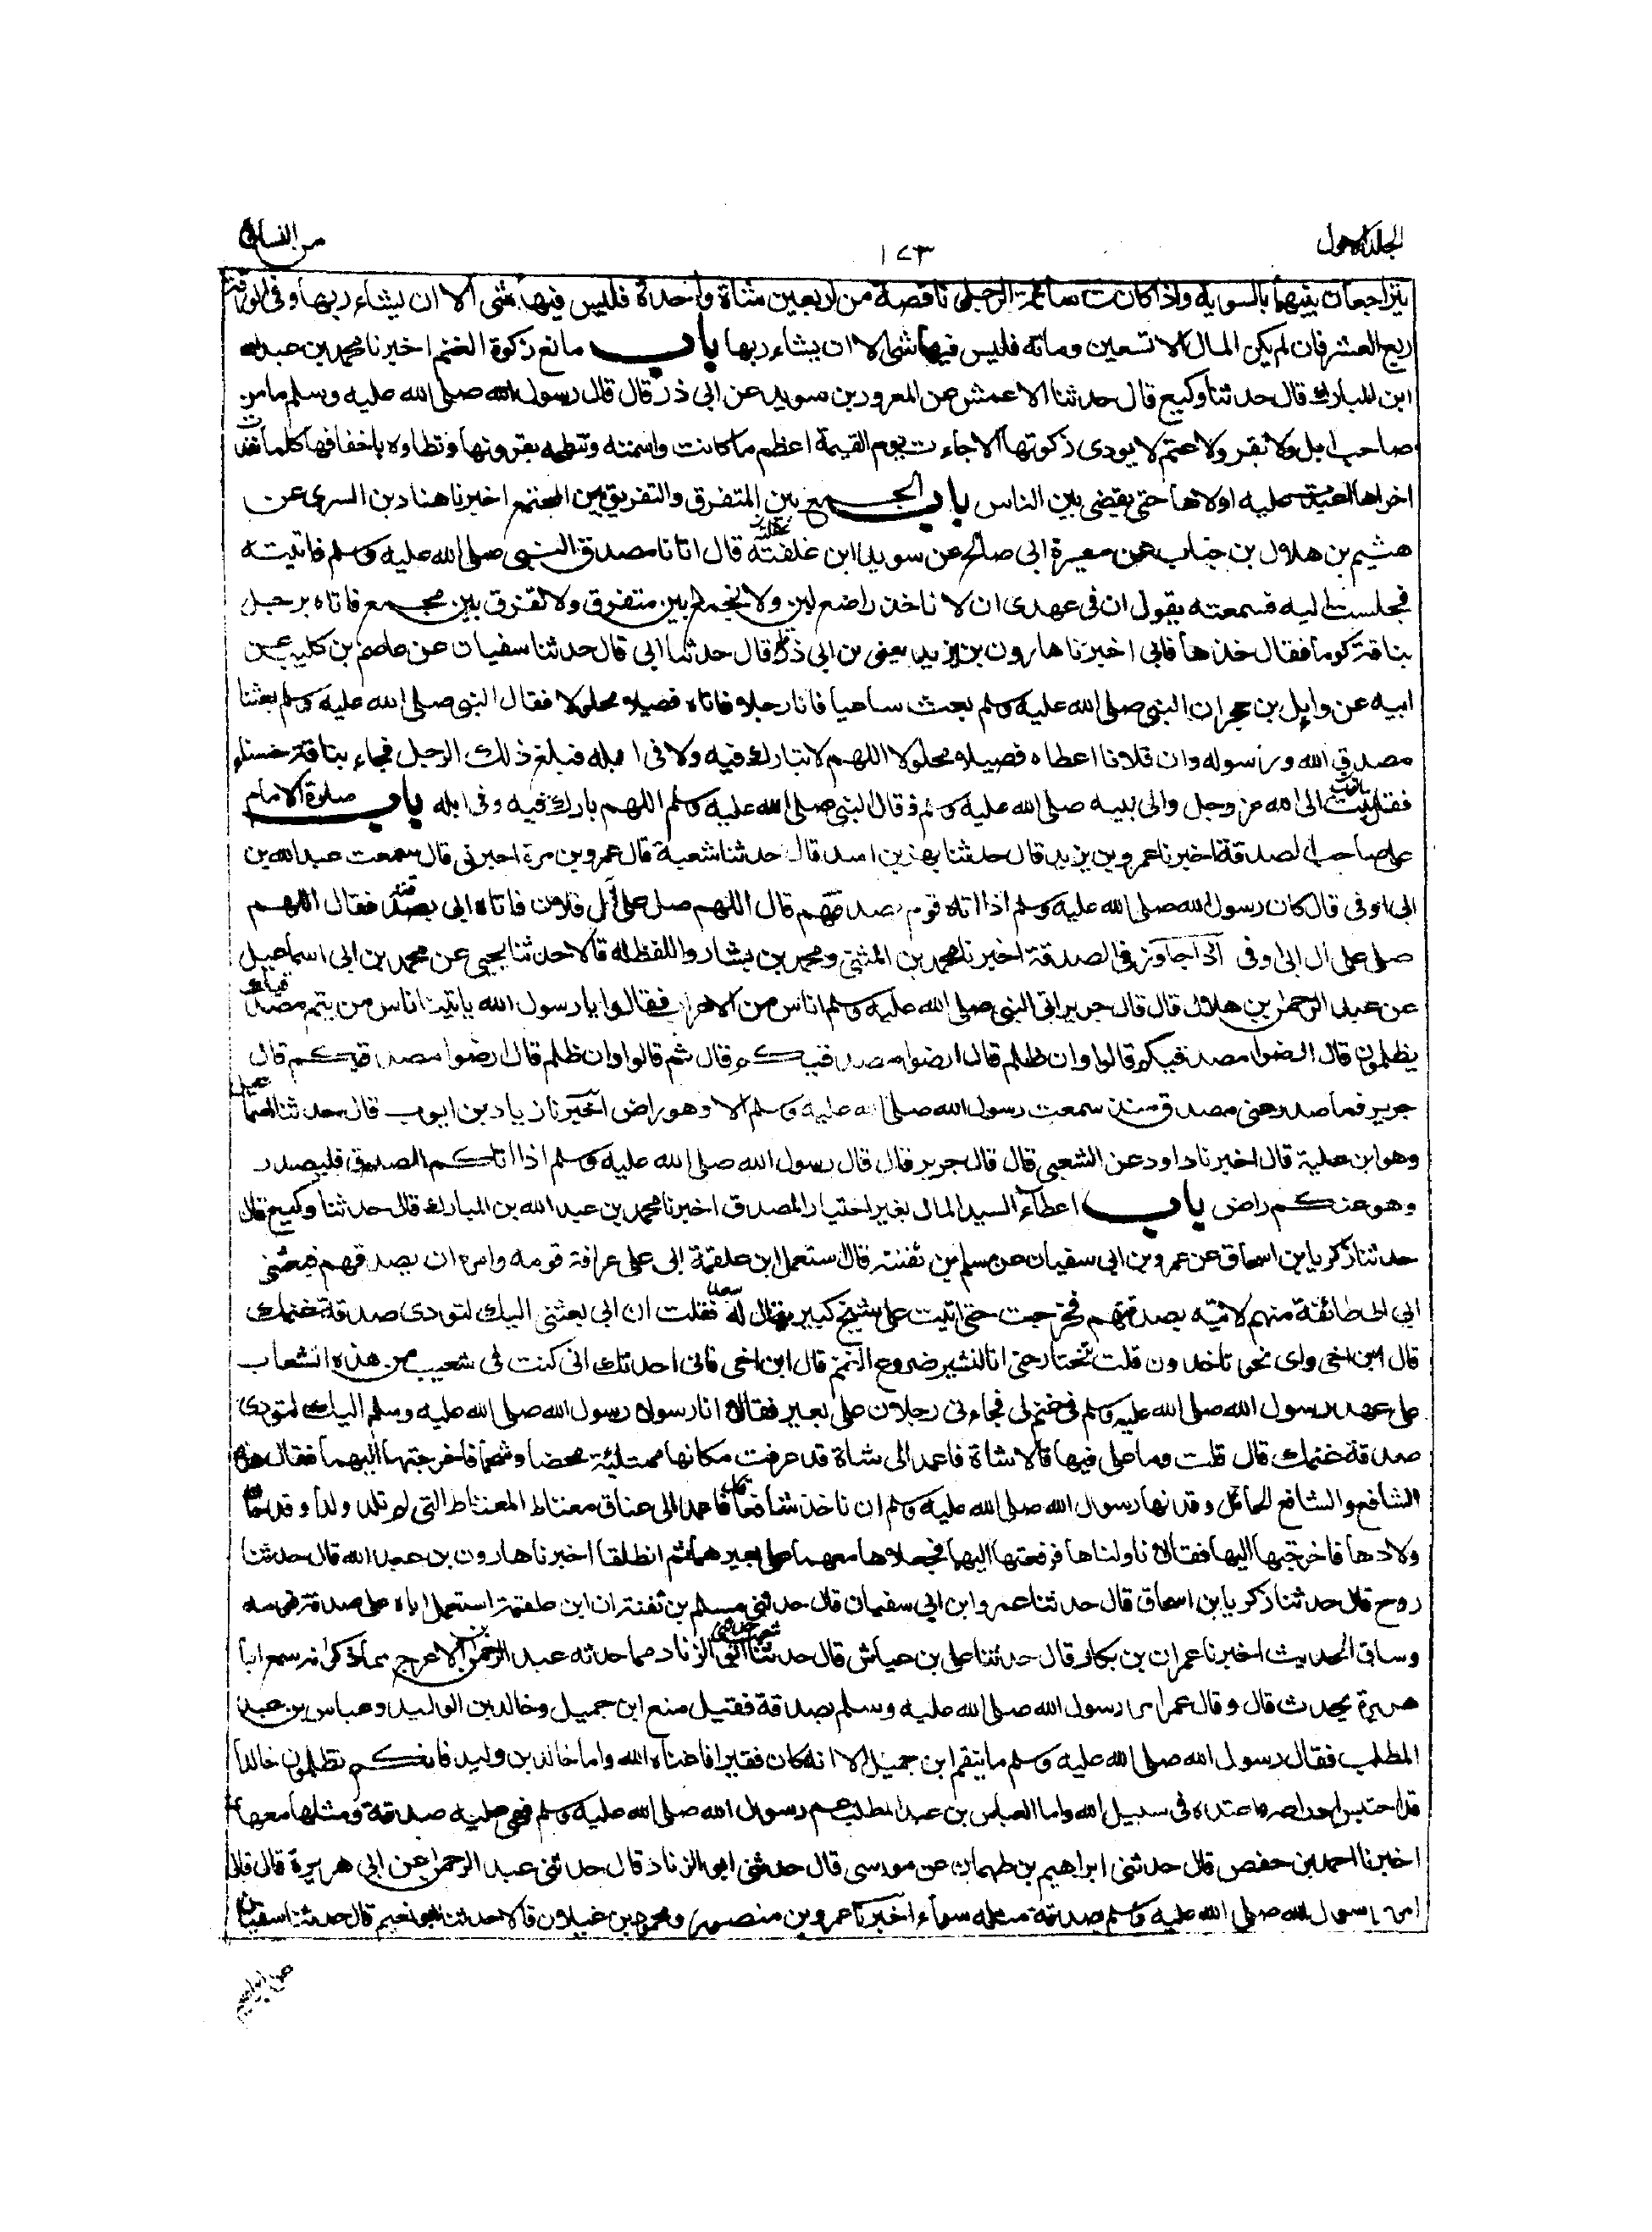 الجلد الاول
١٧٣
من النسائى
يتراجعان بينهما بالسوية واذا كانت سائمة الرجل ناقصة من اربعين شاة واحدة فليس فيها شى الا ان يشاء ربها وفى الرقة
ربع العشر فان لم يكن المال الا تسعين ومائة فليس فيها شى الا ان يشاء ربها باب مانع زكوة الغنم اخبرنا محمد بن عبد الله
ابن المبارك قال حدثنا وكيع قال حدثنا الاعمش عن المعرور بن سويد عن ابى ذر قال قال رسول الله صلى الله عليه وسلم ما من
صاحب ابل ولا بقر ولا غنم لا يودى زكوتها الا جاءت يوم القيمة اعظم ما كانت واسمنه وتنطحه بقرونها وتطاوه باخفافها كلما نفدت
اخراها اعيدت عليه اولاها حتى يقضى بين الناس باب الجمع بين المتفرق والتفريق بين المجتمع اخبرنا هناد بن السرى عن
هشيم بن هلال بن خباب عن ميسرة ابى صالح عن سويد ابن غفلة قال اتانا مصدق النبى صلى الله عليه وسلم فاتيته
فجلست اليه فسمعته يقول ان فى عهدى ان لا ناخذ راضع لبن ولا نجمع بين متفرق ولا نفرق بين مجمع فاتاه رجل
بناقة كوما فقال خذها فابى اخبرنا هارون بن يزيد يعنى بن ابى قال حدثنا ابى قال حدثنا سفيان عن عاصم بن كليب عن
ابيه عن وايل بن حجر ان النبى صلى الله عليه وسلم بعث ساعيا فاتا رجلا فاتاه فصيلا محلولا فقال النبى صلى الله عليه وسلم بعثنا
مصدق الله ورسوله وان فلانا اعطاه فصيلا محلولا اللهم لا تبارك فيه ولا فى ابله فبلغ ذلك الرجل فجاء بناقة حسناء
فقال اتوب الى الله عز وجل والى نبيه صلى الله عليه وسلم فقال النبى صلى الله عليه وسلم اللهم بارك فيه وفى ابله باب صلوة الامام
على صاحب الصدقة اخبرنا عمرو بن يزيد قال حدثنا بهز بن اسد قال حدثنا شعبة قال عمرو بن مرة اخبرنى قال سمعت عبد الله بن
ابى اوفى قال كان رسول الله صلى الله عليه وسلم اذا اتاه قوم بصدقتهم قال اللهم صل على آل فلان فاتاه ابى بصدقته فقال اللهم
صل على آل ابى اوفى اذا جاوز فى الصدقة اخبرنا محمد بن المثنى ومحمد بن بشار واللفظ له قالا حدثنا يحيى عن محمد بن ابى اسماعيل
عن عبد الرحمن بن هلال قال قال جرير اتى النبى صلى الله عليه وسلم اناس من الاعراب فقالوا يا رسول الله ياتينا ناس من
يظلمون قال ارضوا مصدقيكم قالوا وان ظلم قال ارضوا مصدقيكم قال ثم قالوا وان ظلم قال ارضوا مصدقيكم قال
جرير فما صدر عنى مصدق منذ سمعت رسول الله صلى الله عليه وسلم الا وهو راض اخبرنا زياد بن ايوب قال حدثنا اسماعيل
وهو ابن علية قال اخبرنا داود عن الشعبى قال قال جرير قال قال رسول الله صلى الله عليه وسلم اذا اتاكم المصدق فليصدر
وهو عنكم راض باب اعطاء السيد المال بغير اختيار المصدق اخبرنا محمد بن عبد الله بن المبارك قال حدثنا وكيع قال
حدثنا زكريا بن اسحاق عن عمرو بن ابى سفيان عن مسلم بن ثفنة قال استعمل ابن علقمة ابى على عرافة قومه وامره ان يصدقهم فبعثنى
ابى الى طائفة منهم لاتيه بصدقتهم فخرجت حتى اتيت على شيخ كبير يقال له سعر فقلت ان ابى بعثنى اليك لتودى صدقة غنمك
قال ابن اخى واى نحو تاخذون قلت نختار حتى انا لنشبر ضروع الغنم قال ابن اخى فانى احدثك انى كنت فى شعب من هذه الشعاب
على عهد رسول الله صلى الله عليه وسلم فى غنم لى فجاءنى رجلان على بعير فقالا انا رسولا رسول الله صلى الله عليه وسلم اليك لتودى
صدقة غنمك قال قلت وما على فيها قالا شاة فاعمد الى شاة قد عرفت مكانها ممتلئة محضا وشحما فاخرجتها اليهما فقال هذه
الشافع والشافع الحائل وقد نها رسول الله صلى الله عليه وسلم ان ناخذ شافعا قال فاعمد الى عناق معتاط المعتاط التى لم تلد ولدا وقد حان
ولادها فاخرجتها اليهما فقالا ناولناها فرفعتها اليهما فجعلاها معهما على بعيرهما ثم انطلقا اخبرنا هارون بن عبد الله قال حدثنا
روح قال حدثنا زكريا بن اسحاق قال حدثنا عمرو ابن ابى سفيان قال حدثنى مسلم بن ثفنة ان ابن علقمة استعمل اباه على صدقة قومه
وساق الحديث اخبرنا عمران بن بكار قال حدثنا على بن عياش قال حدثنا شعيب حدثنى ابو الزناد مما حدثه عبد الرحمن الاعرج مما ذكر انه سمع ابا
هريرة يحدث قال وقال عمر امر رسول الله صلى الله عليه وسلم بصدقة فقيل منع ابن جميل وخالد بن الوليد وعباس بن عبد
المطلب فقال رسول الله صلى الله عليه وسلم ما ينقم ابن جميل الا انه كان فقيرا فاغناه الله واما خالد بن وليد فانكم تظلمون خالدا
قد احتبس ادراعه واعتده فى سبيل الله واما العباس بن عبد المطلب عم رسول الله صلى الله عليه وسلم فهى عليه صدقة ومثلها معها
اخبرنا احمد بن حفص قال حدثنى ابراهيم بن طهمان عن موسى قال حدثنى ابو الزناد قال حدثنى عبد الرحمن عن ابى هريرة قال قال
امر رسول الله صلى الله عليه وسلم بصدقة مثله سواء اخبرنا عمرو بن منصور ومحمود بن غيلان قالا حدثنا ابو نعيم قال حدثنا سفيان
عن ابراهيم